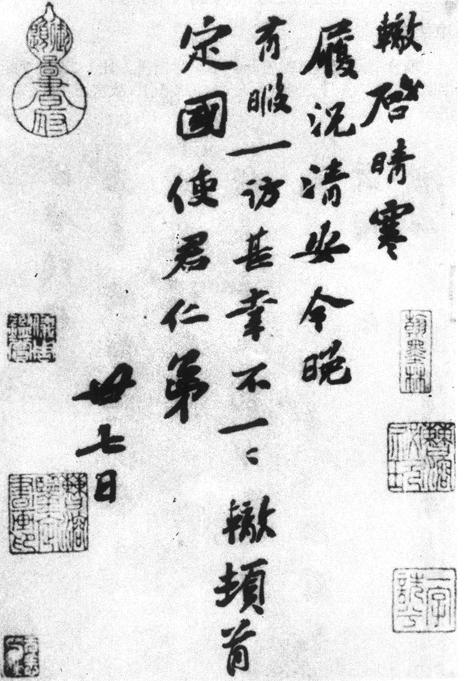 轍啓晴寒
履況清安今晚
有暇一訪甚幸不一〻轍頓首
定國使君仁弟
廿七日
翰墨林